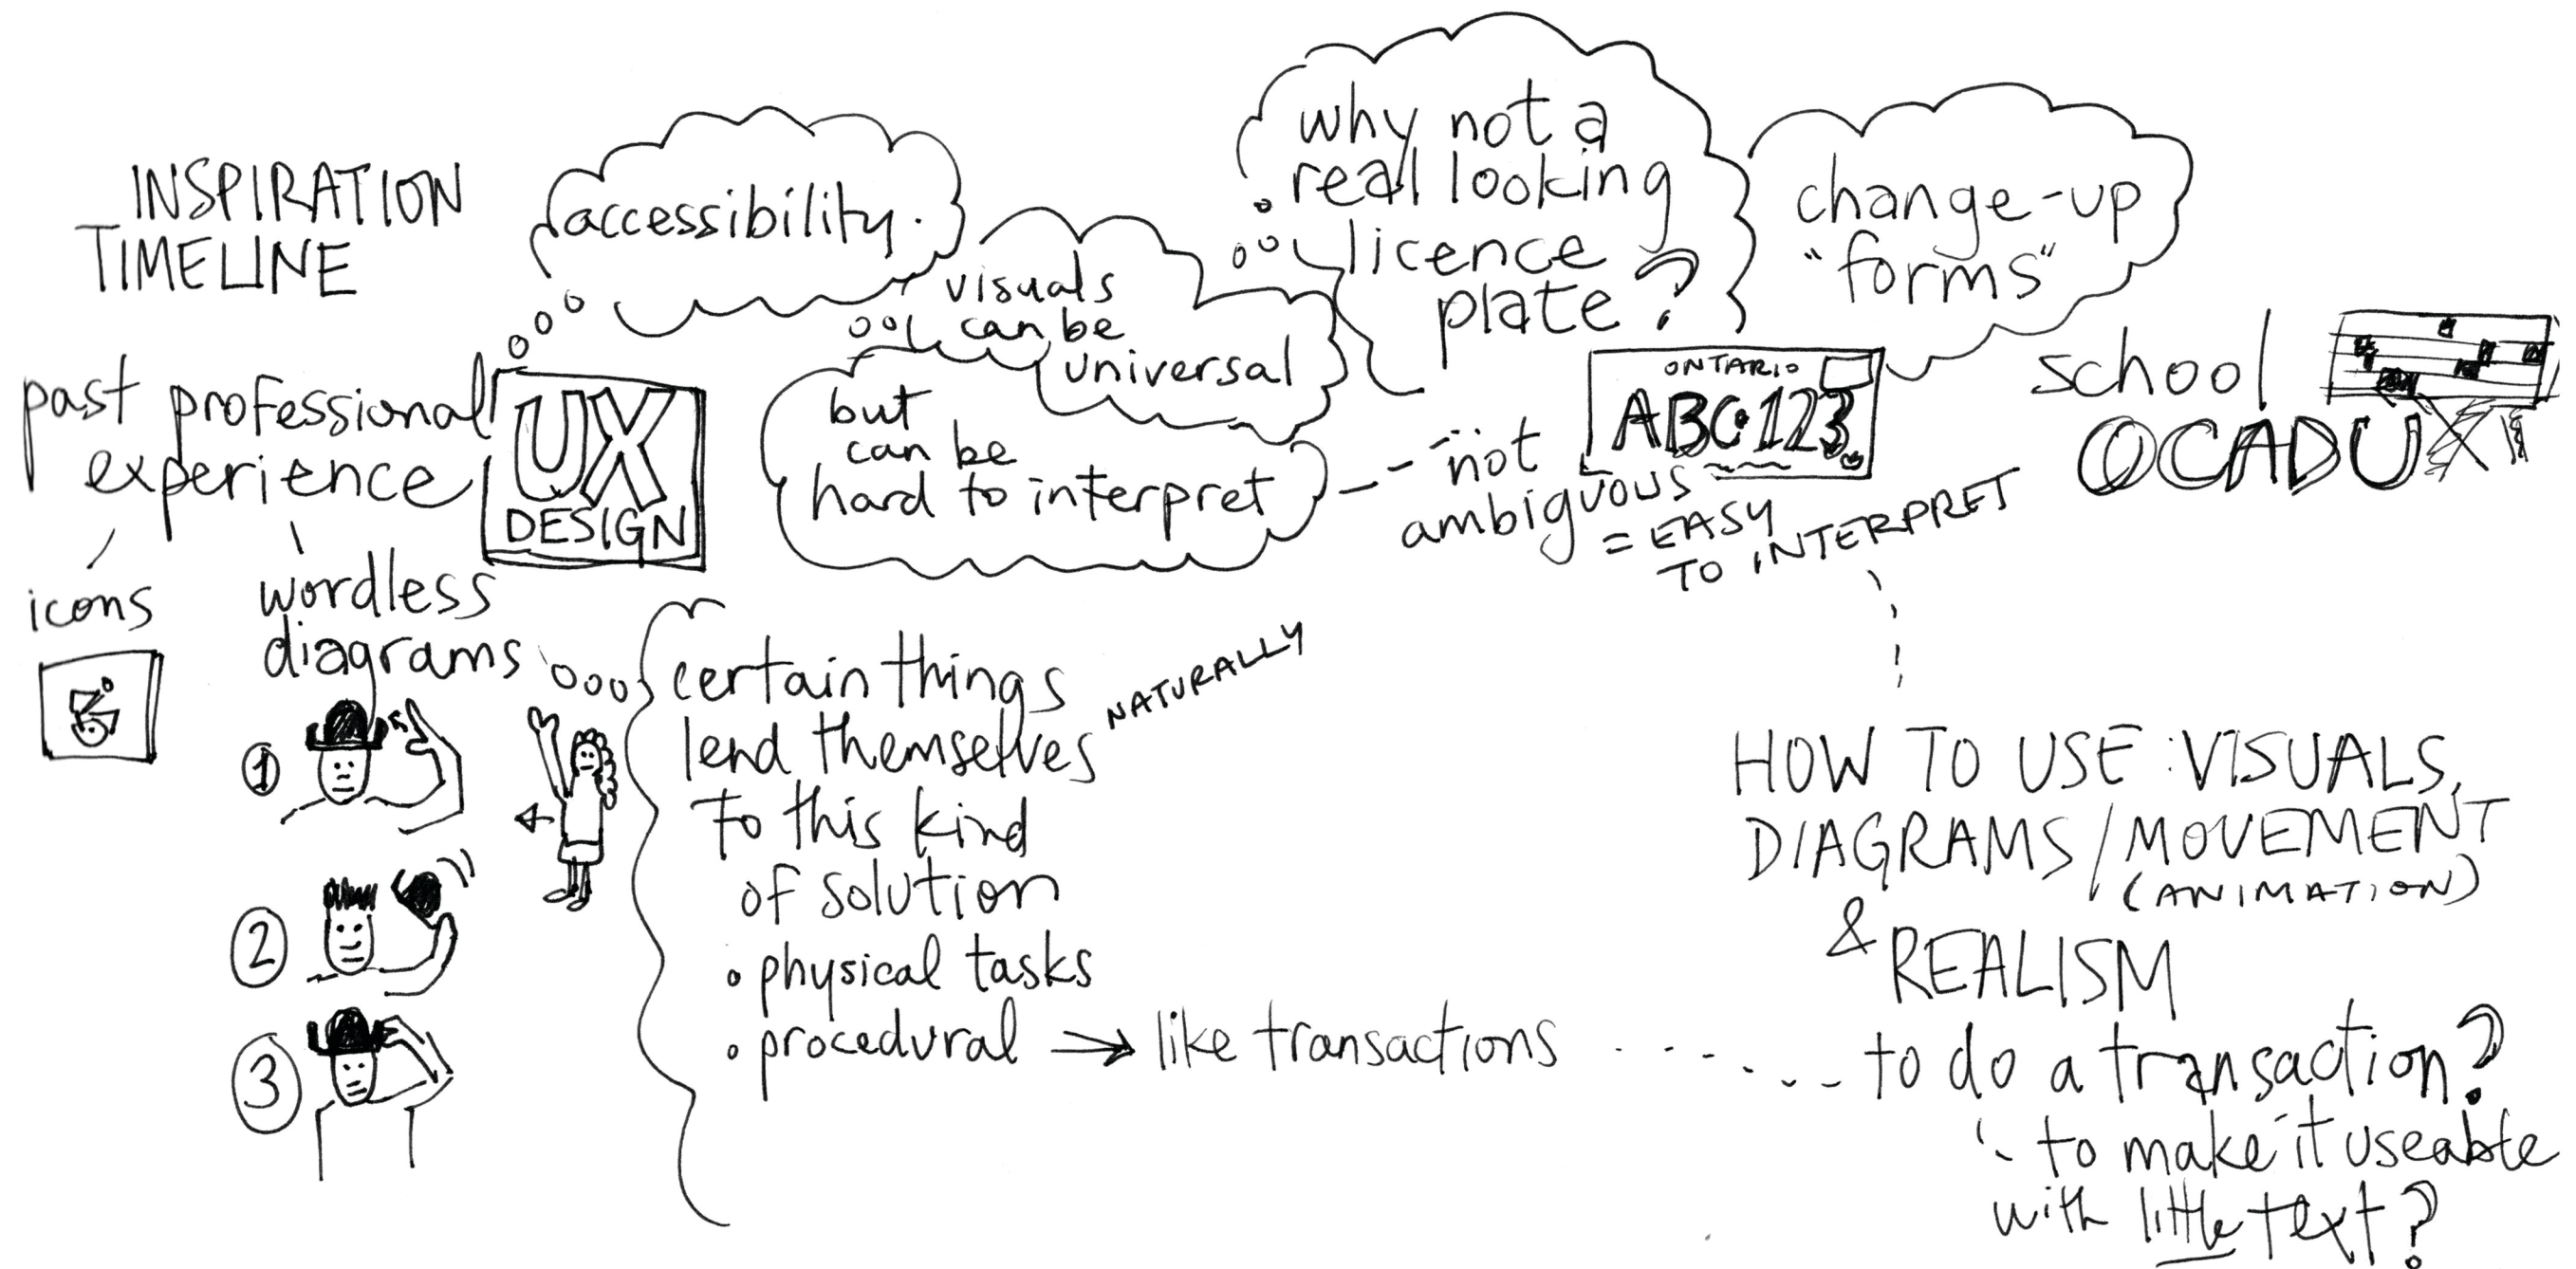 INSPIRATION
TIMELINE
past professional
experience
icons
wordless
diagrams
1
2
3
UX
DESIGN
accessibility.
visuals
can be
universal
but
can be
hard to interpret
not
ambiguous
= EASY
TO INTERPRET
why not a
real looking
licence
plate?
ONTARIO
ABC·123
change-up
"forms"
school
OCADU
certain things
lend themselves
NATURALLY
to this kind
of solution
• physical tasks
• procedural → like transactions
HOW TO USE VISUALS,
DIAGRAMS / MOVEMENT
(ANIMATION)
& REALISM
to do a transaction?
to make it useable
with little text?